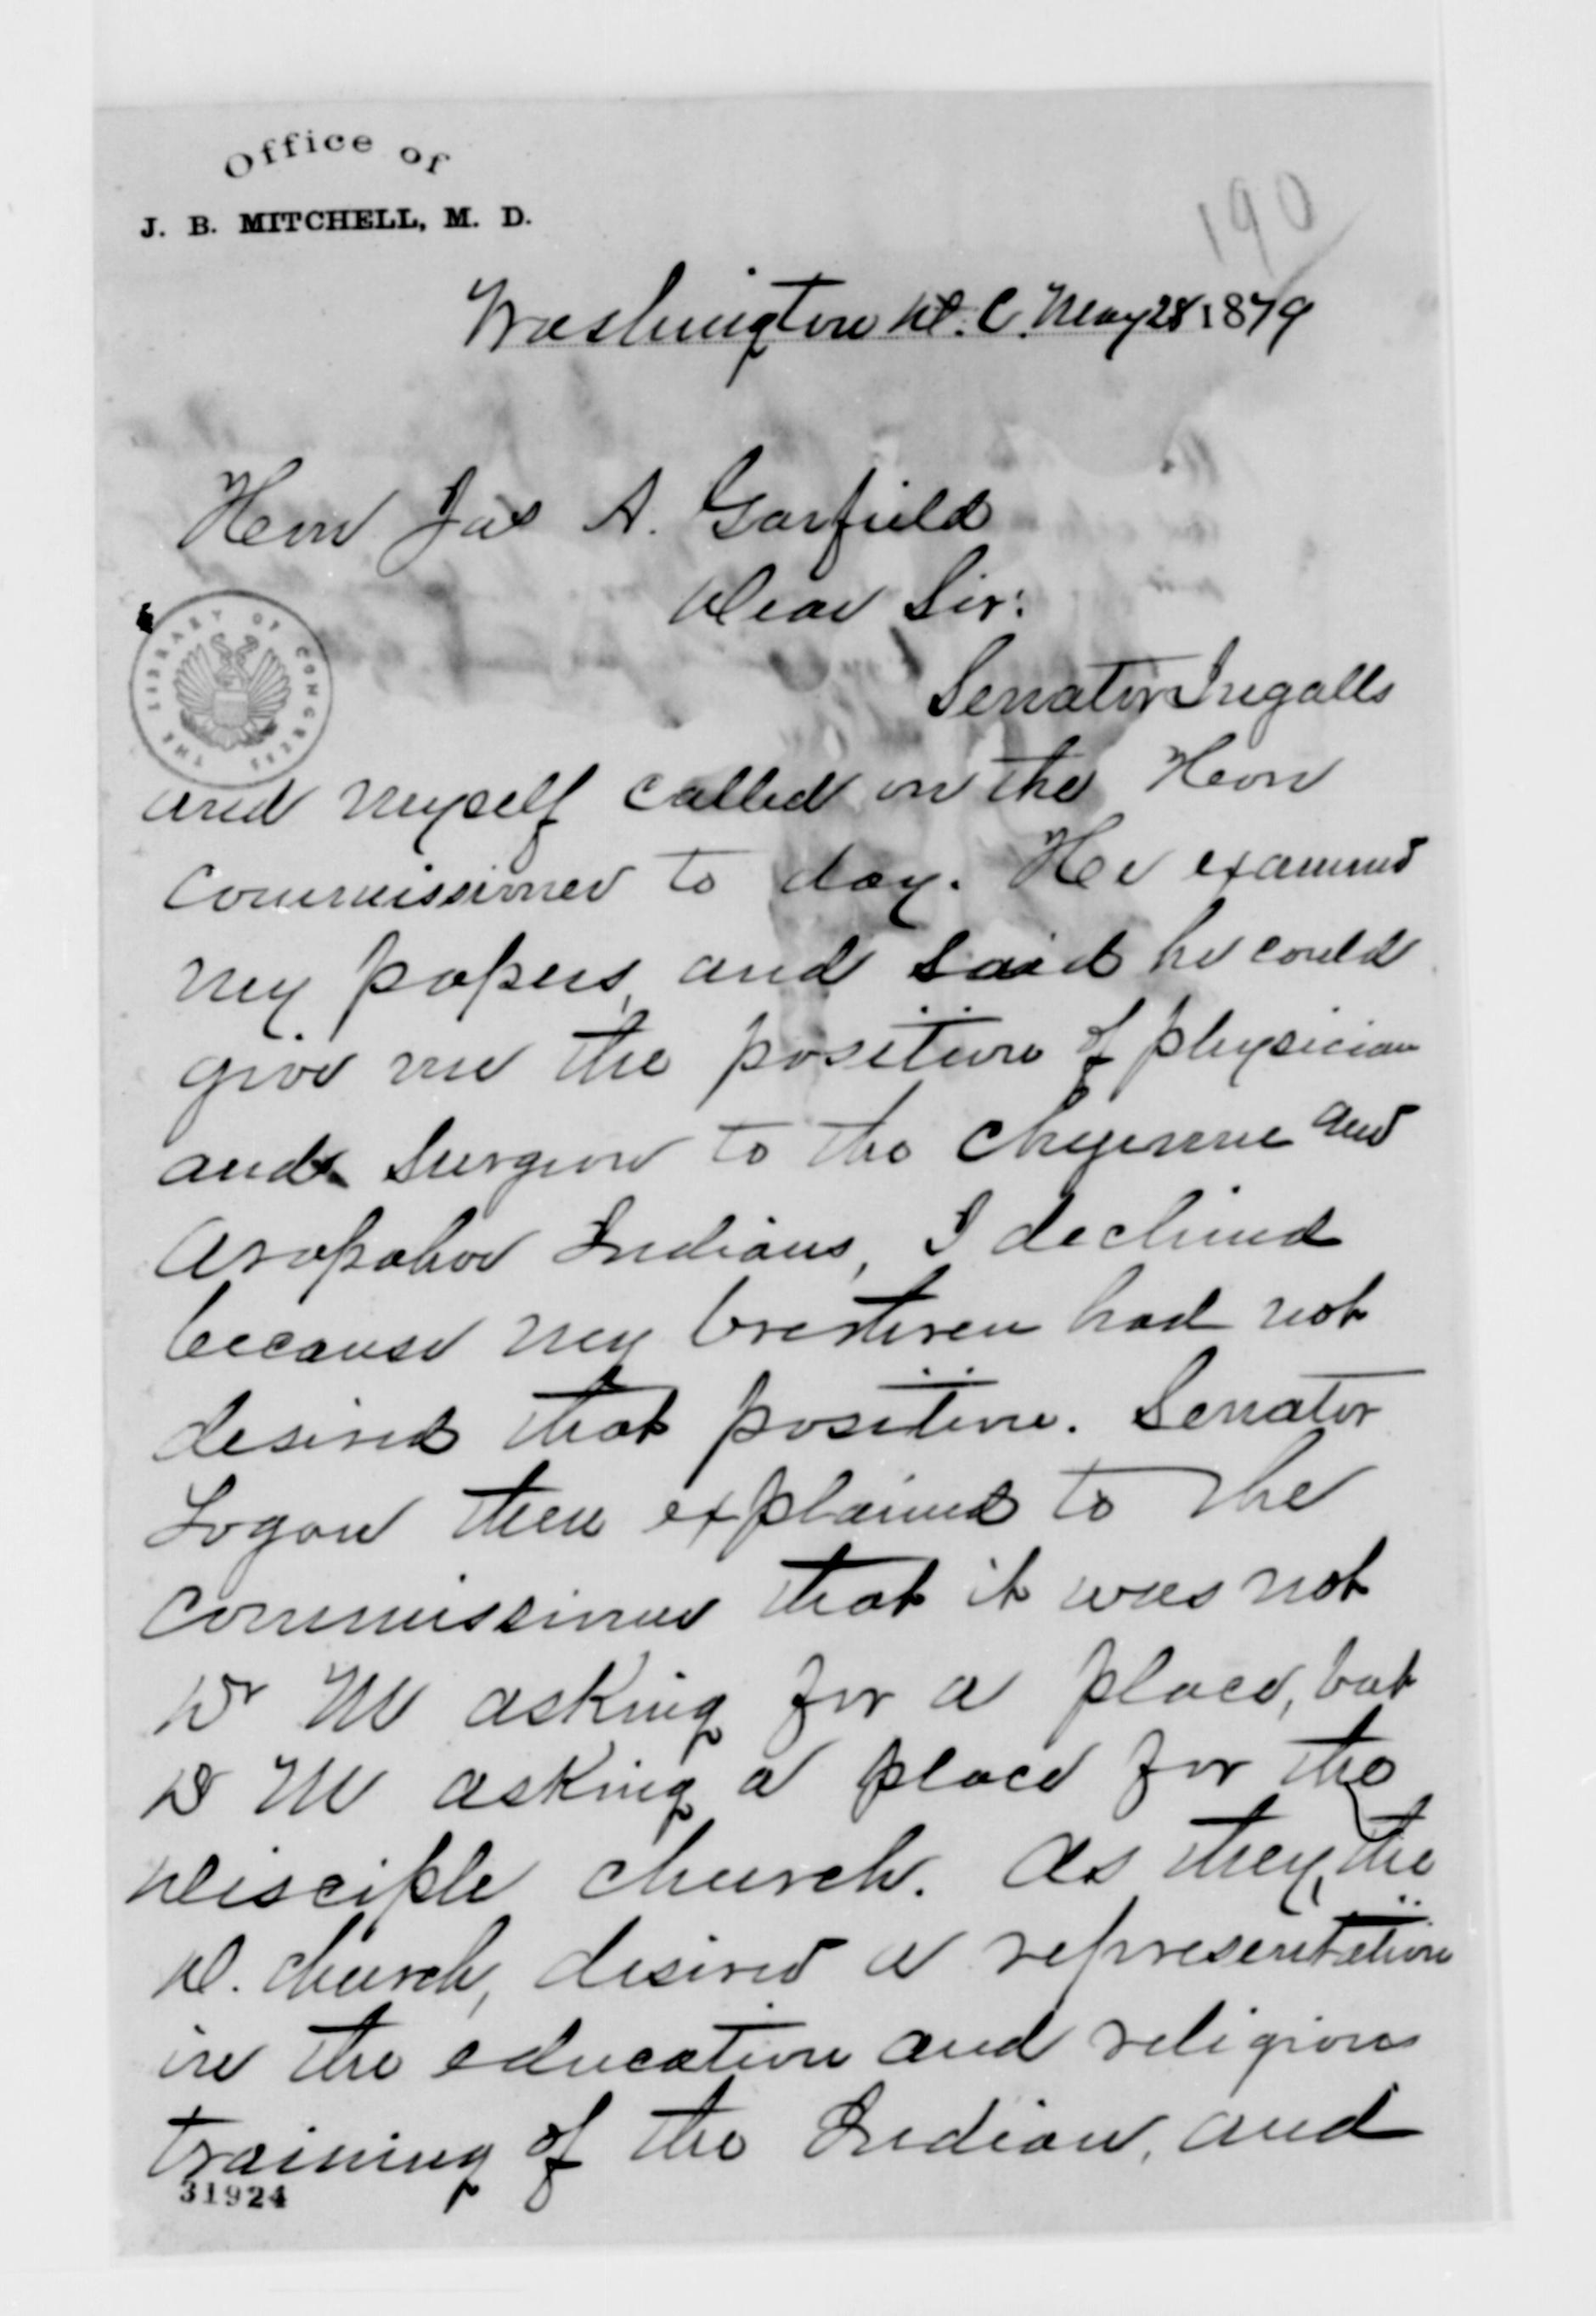 Office of
J. B. MITCHELL, M. D.
190
Washington D. C. May 28 1879
Hon Jas A. Garfield
Dear Sir:
Senator Ingalls
THE LIBRARY OF CONGRESS
and myself called on the Hon
Commissioner to day. He examined
my papers, and said he could
give me the position of physician
and Surgeon to the Cheyenne and
Arapahoe Indians, I declined
because my brethren had not
desired that position. Senator
Logan then explained to the
Commissioner that it was not
Dr M asking for a place, but
Dr M asking a place for the
Disciple church. As they, the
D. church, desired a representation
in the education and religious
training of the Indian, and
31924